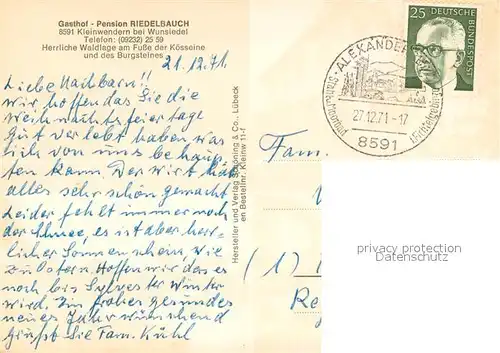 Gasthof - Pension RIEDELBAUCH
8591 Kleinwendern bei Wunsiedel
Telefon: (09232) 25 59
Herrliche Waldlage am Fuße der Kösseine
und des Burgsteines
21.12.71.
Liebe Nachbarn!!
Wir hoffen das Sie die
Weihnachtsfeiertage
Gut verlebt haben was
sich von uns behaup-
ten kann. Der Wirt hat
alles sehr schön gemacht
Leider fehlt immer noch
der Schnee, es ist aber herr-
licher Sonnenschein wie
zu Ostern. Hoffen wir das es
noch bis Sylvester Winter
wird. Ein frohes gesundes
neues Jahr wünschend
Grüßt Sie Fam. Kühl
Hersteller und Verlag Schöning & Co., Lübeck
en Bestellnr. Kleinw 11-f
ALEXANDER
27.12.71-17
8591
25
DEUTSCHE
BUNDESPOST
Fam.
(1)
privacy protection
Datenschutz